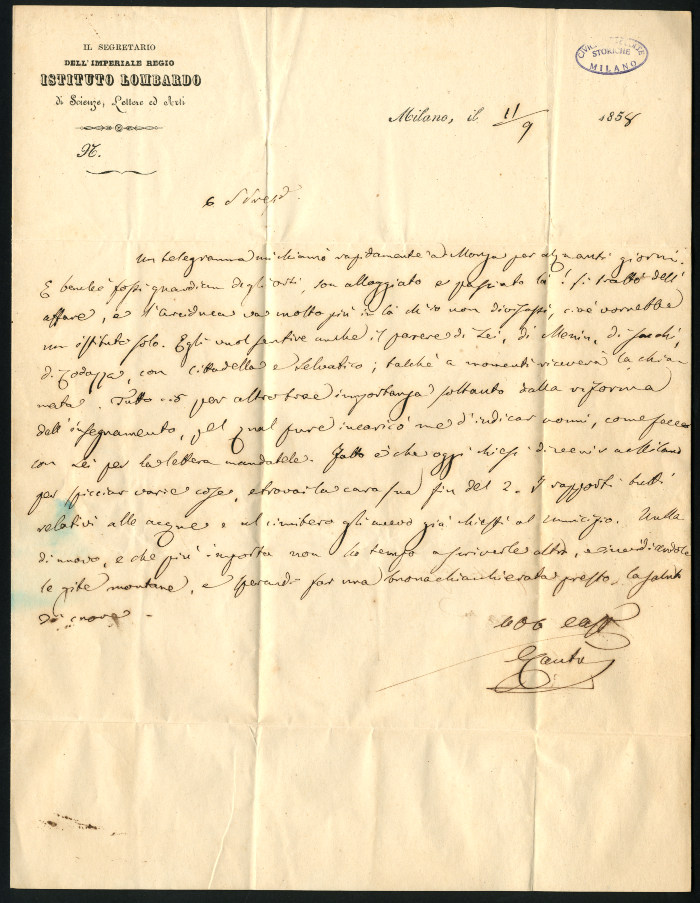 IL SEGRETARIO
DELL'IMPERIALE REGIO
ISTITUTO LOMBARDO
di Scienze, Lettere ed Arti
N.
CIVICHE RACCOLTE
STORICHE
MILANO
Milano, il 11/9 1858
un telegramma mi chiamò rapidamente a Monza per alquanti giorni.
E benchè fossi guardian degli orti, son alloggiato e pasciato là! Si trattò dell'
affare, e l'Arciduca va molto più in là ch'io non divisassi, e vorrebbe
un istituto solo. Egli vuol sentire anche il parere di Lei, di Menin, di
di Codazza, con Cittadella e Selvatico; talchè a momenti riceverà la chia
mata. Tutto ciò per altro trae importanza soltanto dalla riforma
dell'insegnamento, pel qual pure incaricò me d'indicar nomi, come feci
con Lei per la lettera mandatele. Fatto è che oggi chiesi di venir a Milano
per spicciar varie cose, e trovai la cara sua fin del 2. I rapporti tutti
relativi alle acque e al cimitero gli avevo già chiesti al Municipio. Nulla
di nuovo, e che più importa non ho tempo a scriverle altro, e ricordandole
le gite montane, e sperando far una buona chiacchierata presto, la saluto
di cuore
Cantù